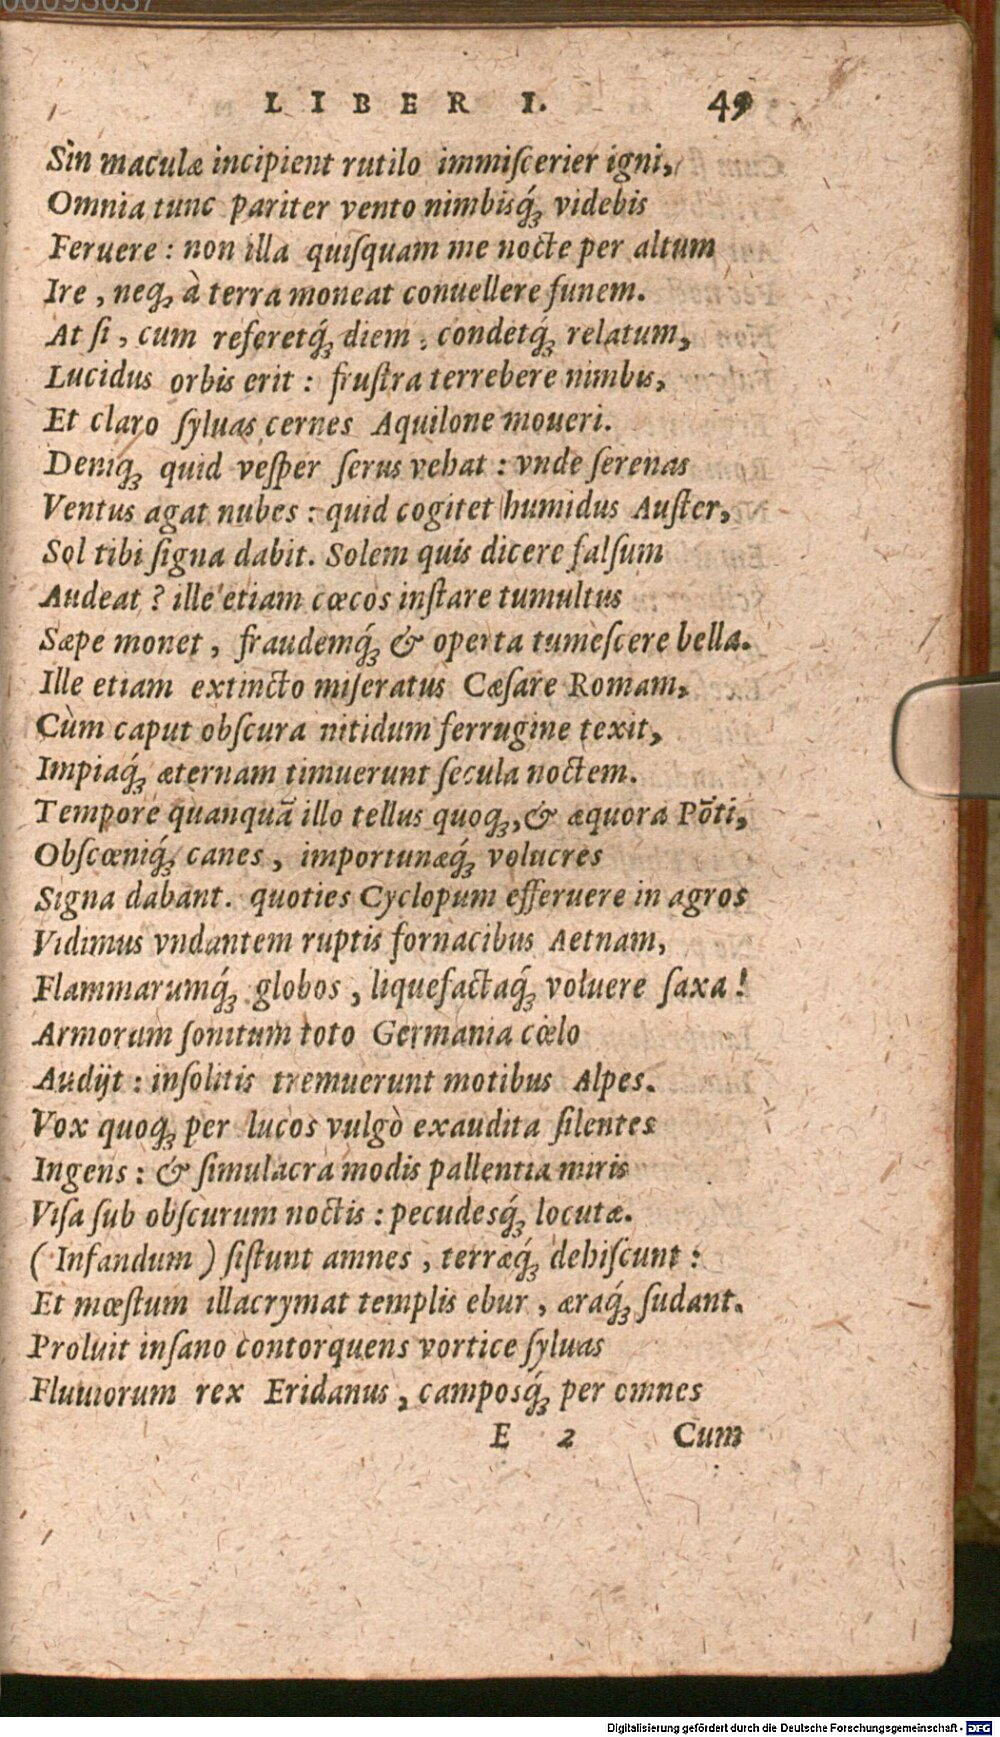 LIBER I. 49
Sin maculæ incipient rutilo immiſcerier igni,
Omnia tunc pariter vento nimbisq́ꝫ videbis
Feruere : non illa quiſquam me nocte per altum
Ire , neqꝫ à terra moneat conuellere funem.
At ſi , cum referetq́ꝫ diem , condetq́ꝫ relatum,
Lucidus orbis erit : fruſtra terrebere nimbis,
Et claro ſyluas cernes Aquilone moueri.
Deniqꝫ quid veſper ſerus vehat : vnde ſerenas
Ventus agat nubes : quid cogitet humidus Auſter,
Sol tibi ſigna dabit. Solem quis dicere falſum
Audeat ? ille etiam cœcos inſtare tumultus
Sæpe monet , fraudemq́ꝫ & operta tumeſcere bella.
Ille etiam extincto miſeratus Cæſare Romam,
Cùm caput obſcura nitidum ferrugine texit,
Impiaq́ꝫ æternam timuerunt ſecula noctem.
Tempore quanquã illo tellus quoqꝫ, & æquora Põti,
Obſcœniq́ꝫ canes , importunæq́ꝫ volucres
Signa dabant. quoties Cyclopum efferuere in agros
Vidimus vndantem ruptis fornacibus Aetnam,
Flammarumq́ꝫ globos , liquefactaq́ꝫ voluere ſaxa !
Armorum ſonitum toto Germania cœlo
Audijt : inſolitis tremuerunt motibus Alpes.
Vox quoqꝫ per lucos vulgò exaudita ſilentes
Ingens : & ſimulacra modis pallentia miris
Viſa ſub obſcurum noctis : pecudesq́ꝫ locutæ.
( Infandum ) ſiſtunt amnes , terræq́ꝫ dehiſcunt :
Et mœſtum illacrymat templis ebur , æraq́ꝫ ſudant.
Proluit inſano contorquens vortice ſyluas
Fluuiorum rex Eridanus , camposq́ꝫ per omnes
E 2 Cum
Digitalisierung gefördert durch die Deutsche Forschungsgemeinschaft - DFG